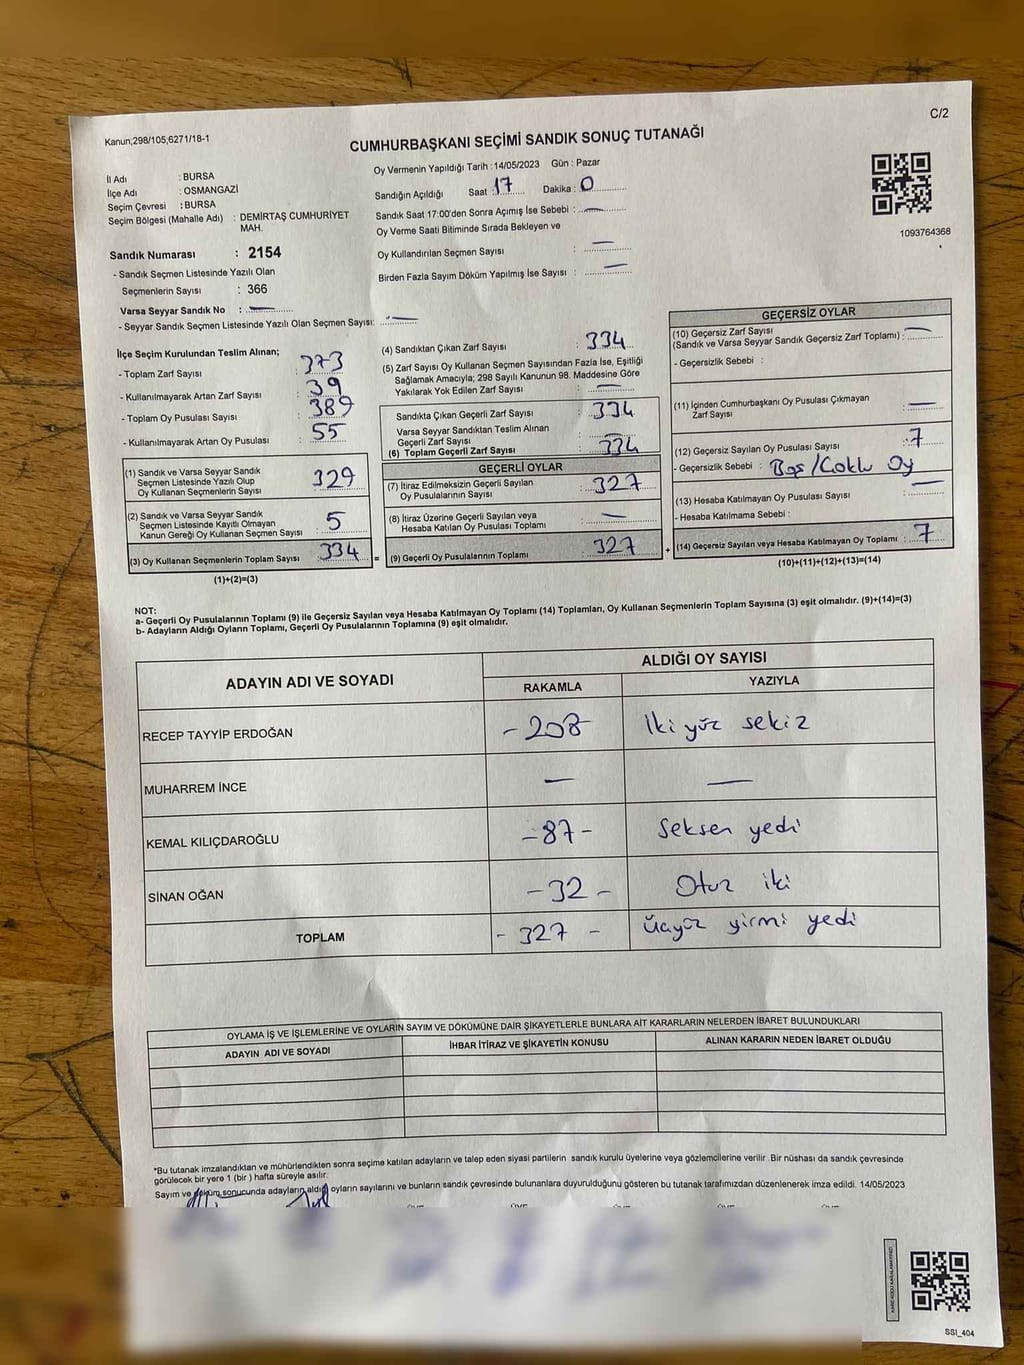 Kanun;298/105;6271/18-1
C/2
CUMHURBAŞKANI SEÇİMİ SANDIK SONUÇ TUTANAĞI
İl Adı : BURSA
İlçe Adı : OSMANGAZİ
Seçim Çevresi : BURSA
Seçim Bölgesi (Mahalle Adı) : DEMİRTAŞ CUMHURİYET
MAH.
Sandık Numarası : 2154
- Sandık Seçmen Listesinde Yazılı Olan
Seçmenlerin Sayısı : 366
Varsa Seyyar Sandık No : —
- Seyyar Sandık Seçmen Listesinde Yazılı Olan Seçmen Sayısı: —
Oy Vermenin Yapıldığı Tarih : 14/05/2023 Gün : Pazar
Sandığın Açıldığı Saat : 17 Dakika : 0
Sandık Saat 17:00'den Sonra Açımış İse Sebebi : —
Oy Verme Saati Bitiminde Sırada Bekleyen ve
Oy Kullandırılan Seçmen Sayısı : —
Birden Fazla Sayım Döküm Yapılmış İse Sayısı : —
1093764368
İlçe Seçim Kurulundan Teslim Alınan;
- Toplam Zarf Sayısı : 373
- Kullanılmayarak Artan Zarf Sayısı : 39
- Toplam Oy Pusulası Sayısı : 389
- Kullanılmayarak Artan Oy Pusulası : 55
(1) Sandık ve Varsa Seyyar Sandık
Seçmen Listesinde Yazılı Olup
Oy Kullanan Seçmenlerin Sayısı 329
(2) Sandık ve Varsa Seyyar Sandık
Seçmen Listesinde Kayıtlı Olmayan
Kanun Gereği Oy Kullanan Seçmen Sayısı 5
(3) Oy Kullanan Seçmenlerin Toplam Sayısı 334
(1)+(2)=(3)
(4) Sandıktan Çıkan Zarf Sayısı : 334
(5) Zarf Sayısı Oy Kullanan Seçmen Sayısından Fazla İse, Eşitliği
Sağlamak Amacıyla; 298 Sayılı Kanunun 98. Maddesine Göre
Yakılarak Yok Edilen Zarf Sayısı : —
Sandıkta Çıkan Geçerli Zarf Sayısı : 334
Varsa Seyyar Sandıktan Teslim Alınan
Geçerli Zarf Sayısı : —
(6) Toplam Geçerli Zarf Sayısı : 334
GEÇERLİ OYLAR
(7) İtiraz Edilmeksizin Geçerli Sayılan
Oy Pusulalarının Sayısı : 327
(8) İtiraz Üzerine Geçerli Sayılan veya
Hesaba Katılan Oy Pusulası Toplamı : —
= (9) Geçerli Oy Pusulalarının Toplamı : 327
GEÇERSİZ OYLAR
(10) Geçersiz Zarf Sayısı
(Sandık ve Varsa Seyyar Sandık Geçersiz Zarf Toplamı) : —
- Geçersizlik Sebebi :
(11) İçinden Cumhurbaşkanı Oy Pusulası Çıkmayan
Zarf Sayısı : —
(12) Geçersiz Sayılan Oy Pusulası Sayısı : 7
- Geçersizlik Sebebi : Boş/Çoklu Oy
(13) Hesaba Katılmayan Oy Pusulası Sayısı : —
- Hesaba Katılmama Sebebi :
+ (14) Geçersiz Sayılan veya Hesaba Katılmayan Oy Toplamı : 7
(10)+(11)+(12)+(13)=(14)
NOT:
a- Geçerli Oy Pusulalarının Toplamı (9) ile Geçersiz Sayılan veya Hesaba Katılmayan Oy Toplamı (14) Toplamları, Oy Kullanan Seçmenlerin Toplam Sayısına (3) eşit olmalıdır. (9)+(14)=(3)
b- Adayların Aldığı Oyların Toplamı, Geçerli Oy Pusulalarının Toplamına (9) eşit olmalıdır.
ADAYIN ADI VE SOYADI ALDIĞI OY SAYISI
RAKAMLA YAZIYLA
RECEP TAYYİP ERDOĞAN - 208 İki yüz sekiz
MUHARREM İNCE — —
KEMAL KILIÇDAROĞLU - 87 - Seksen yedi
SİNAN OĞAN - 32 - Otuz iki
TOPLAM - 327 - Üçyüz yirmi yedi
OYLAMA İŞ VE İŞLEMLERİNE VE OYLARIN SAYIM VE DÖKÜMÜNE DAİR ŞİKAYETLERLE BUNLARA AİT KARARLARIN NELERDEN İBARET BULUNDUKLARI
ADAYIN ADI VE SOYADI İHBAR İTİRAZ VE ŞİKAYETİN KONUSU ALINAN KARARIN NEDEN İBARET OLDUĞU
*Bu tutanak imzalandıktan ve mühürlendikten sonra seçime katılan adayların ve talep eden siyasi partilerin sandık kurulu üyelerine veya gözlemcilerine verilir. Bir nüshası da sandık çevresinde
görülecek bir yere 1 (bir ) hafta süreyle asılır.
Sayım ve döküm sonucunda adayların aldığı oyların sayılarını ve bunların sandık çevresinde bulunanlara duyurulduğunu gösteren bu tutanak tarafımızdan düzenlenerek imza edildi. 14/05/2023
SSI_404